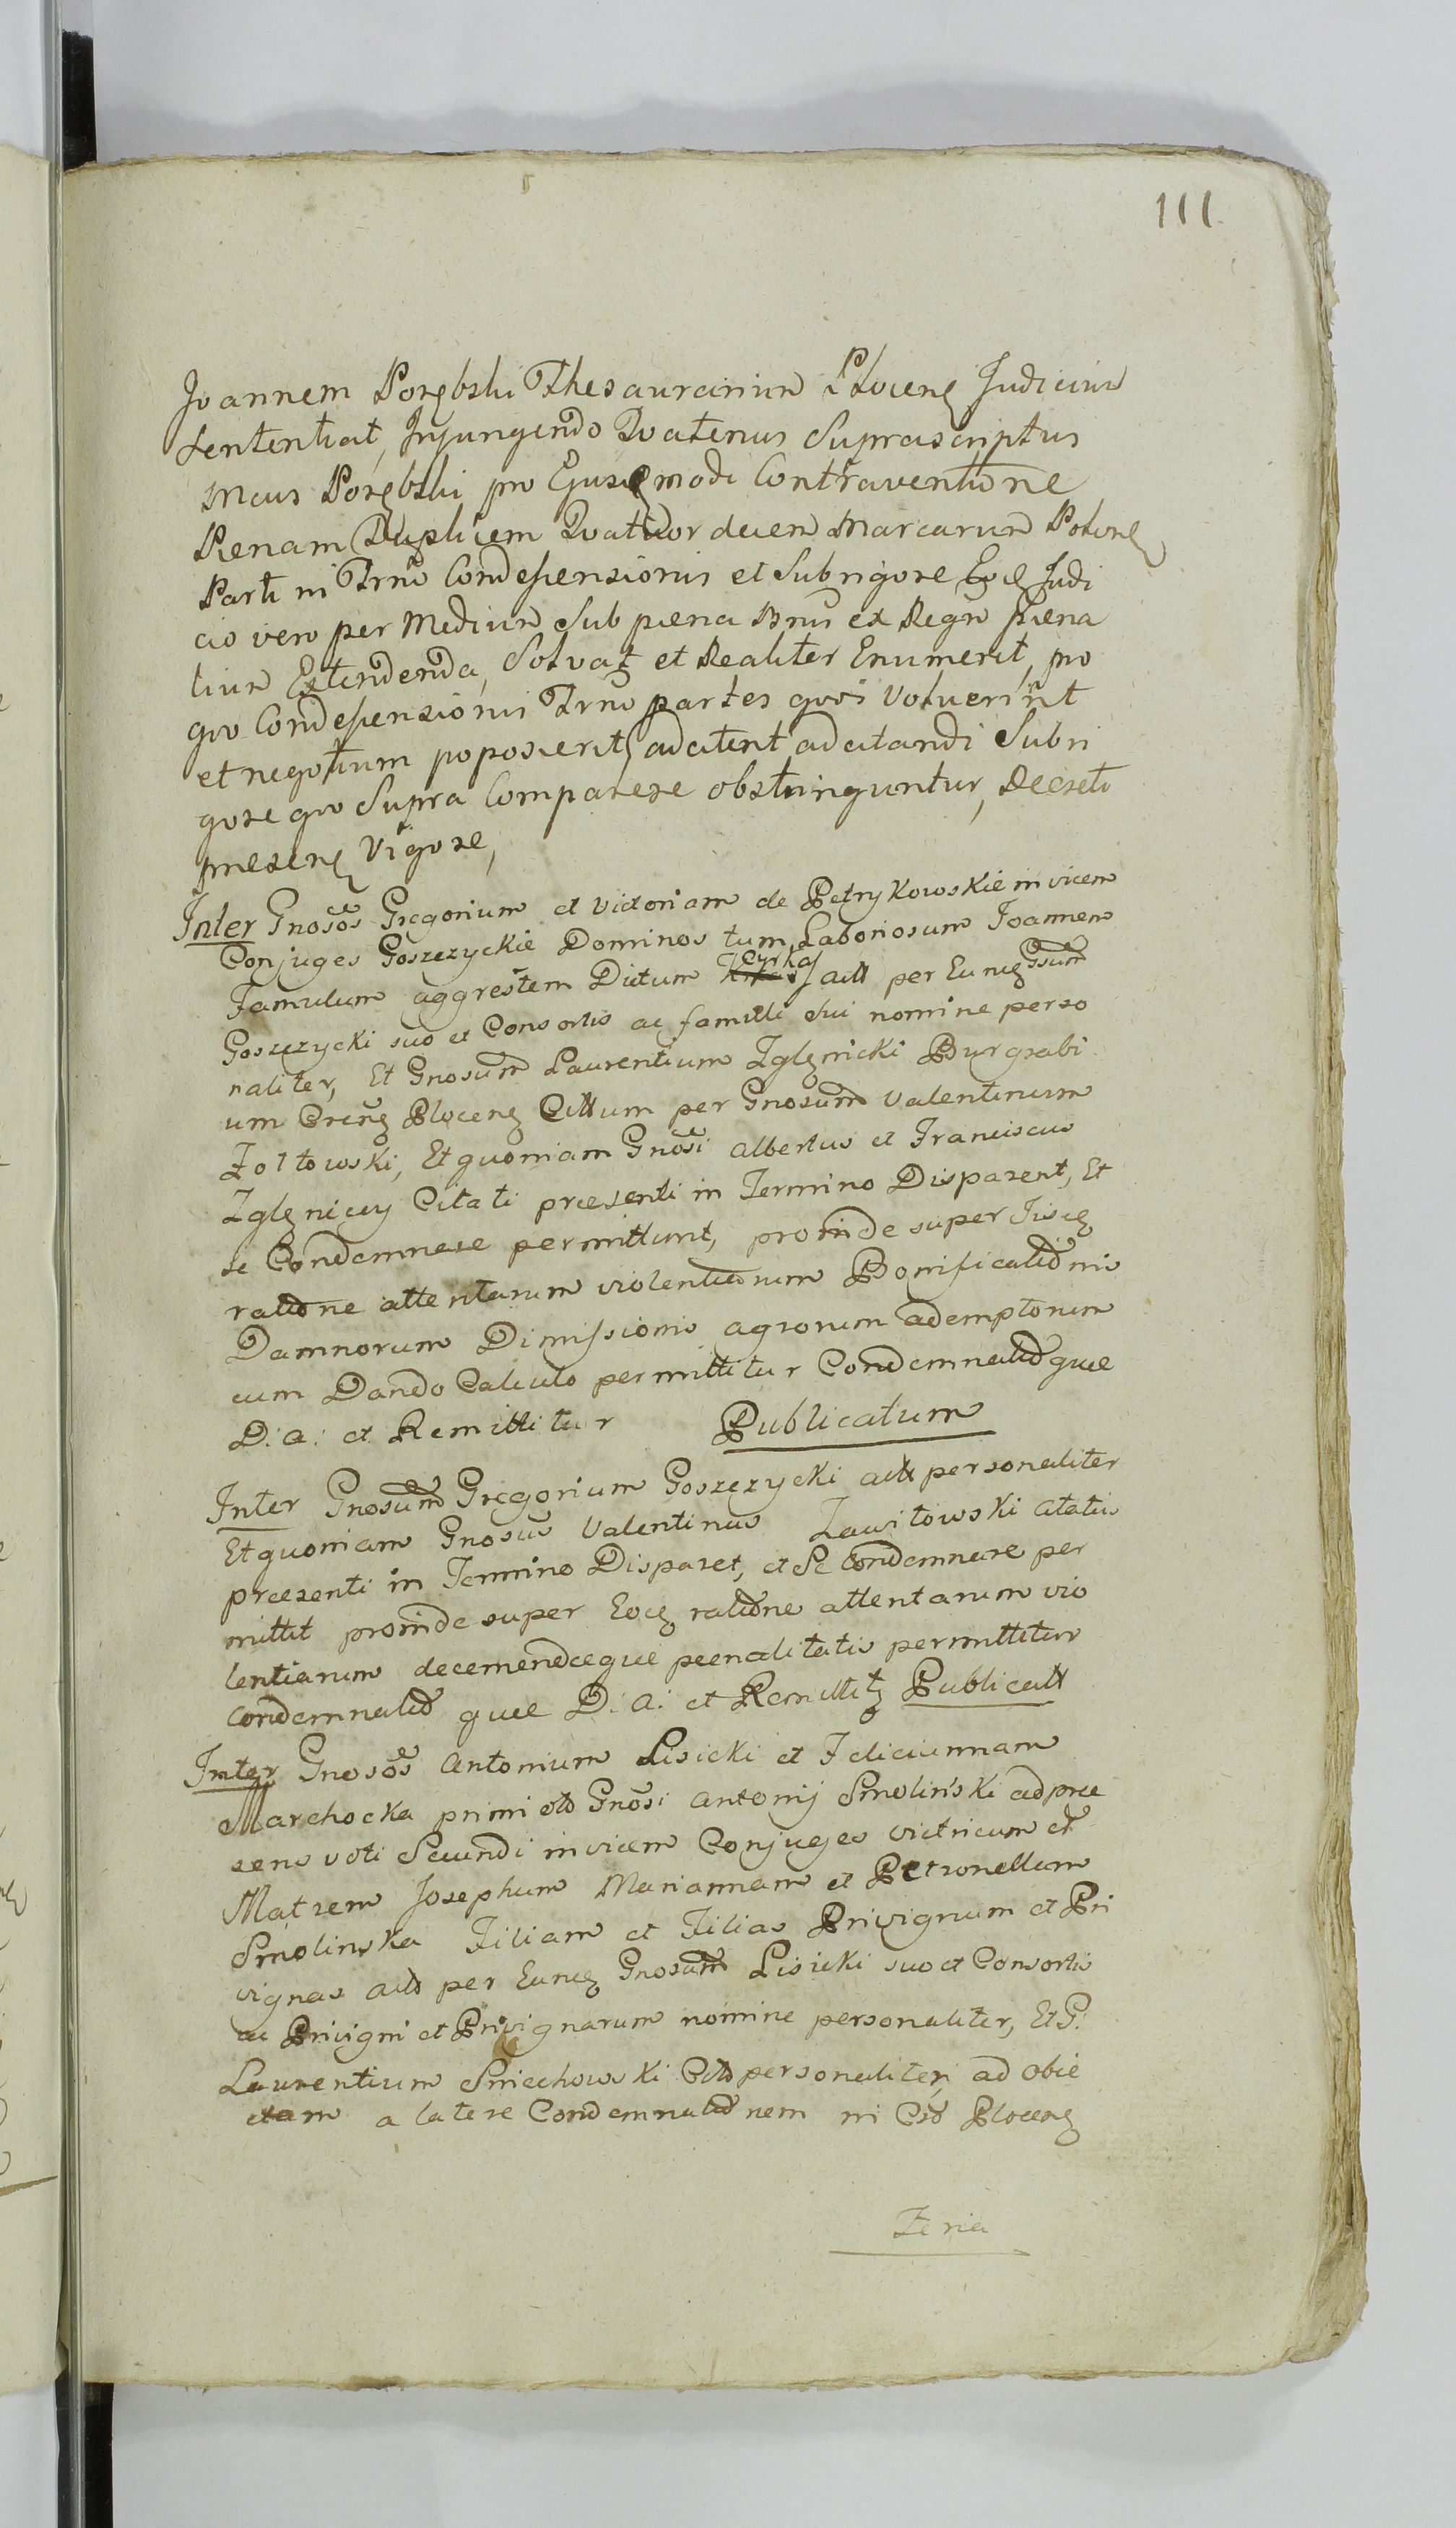 111
Joannem Porębski Thesaurarium Plocens Judicium
Sententiat, Injungendo Quatenus Suprascriptus
Mcus Porębski pro Ejuscemodi Contraventione
Pænam Duplicem Quatuordecem Marcarum Polonę
Parti in Trno Condescensionis et Subrigore Eoę Judi
cio vero per Medium Sub pæna Bnis ex Regno pæna
lium Extendenda, Solvat et Realiter Enumerit, pro
quo Condescensionis Trno partes quos Voluerint
et negotium poposcerit adcitent adcitandi Subri
gore quo Supra Comparere obstringuntur, Decreti
presenę Vigore,
Inter Gnosos Gregorium et Victoriam de Petrykowskie invicem
Conjuges Goszczyckie Dominos tum Laboriosum Joannem
Famulum aggrestem Dictum Cyrka act per Euncę Gsum
Goszczycki suo et Consortis ac famuli sui nomine perso
naliter, Et Gnosum Laurentium Zglęnicki Burgrabi
um Crenę Plocenę Cittum per Gnosum Valentinum
Zołtowski, Et quoniam Gnosi Albertus et Franciscus
Zglęniccy Citati præsenti in Termino Disparent, Et
se Condemnare permittunt, proinde super Iiscę
ratione attentarum violentiarum Bonificationis
Damnorum Dimissionis agrorum ademptorum
cum Dando Calculo permittitur Condemnatio quæ
D: a: et Remittitur Publicatum
Inter Gnosum Gregorium Goszczycki act personaliter
Et quoniam Gnosus Valentinus Zawitowski citatus
præsenti in Termino Disparet, et Se Condemnare per
mittit proinde super Eocę ratione attentarum vio
lentiarum decernendæque pænalitatis permittitur
Condemnatio quæ D. a: et Remittitę Publicatt
Inter Gnosos Antonium Lisicki et Feliciannam
Marchocka primi oto Gnosi Antonij Smolinski ad præ
sens voti Secundi invicem Conjuges victricum et
Matrem Josephum Mariannam et Petronellam
Smolinska Filiam et Filias Privignum et Pri
vignas acto per Euncę Gnosum Lisicki suo et Consortis
ac Privigni et Privignarum nomine personaliter, Et G:
Laurentium Smiechowski Citto personaliter, ad obie
ctam a latere Condemnationem in Cso Plocenę
Feria